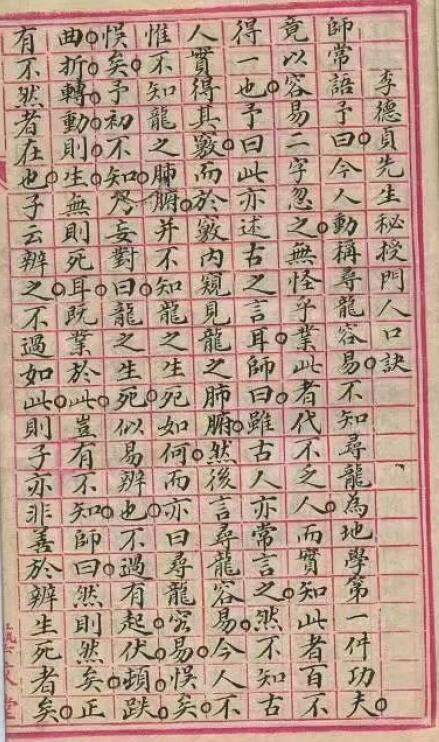 李德貞先生秘授門人口訣
師常語予曰。今人動稱尋龍容易。不知尋龍為地學第一件功夫。
竟以容易二字忽之。無怪乎業此者代不乏人。而實知此者百不
得一也。予曰此亦述古之言耳。師曰。雖古人亦常言之。然不知古
人實得其竅。而於竅內窺見龍之肺腑。然後言尋龍容易。今人不
惟不知龍之肺腑。并不知龍之生死如何。而亦曰尋龍容易。悮矣。
悮矣。予初不知。乃妄對曰。龍之生死。似易辨也。不過有起伏。頓跌
曲。折。轉動則生。無則死耳。既業於此。豈有不知。師曰。然則然矣。正
有不然者在也。子云辨之。不過如此。則子亦非善於辨生死者矣。